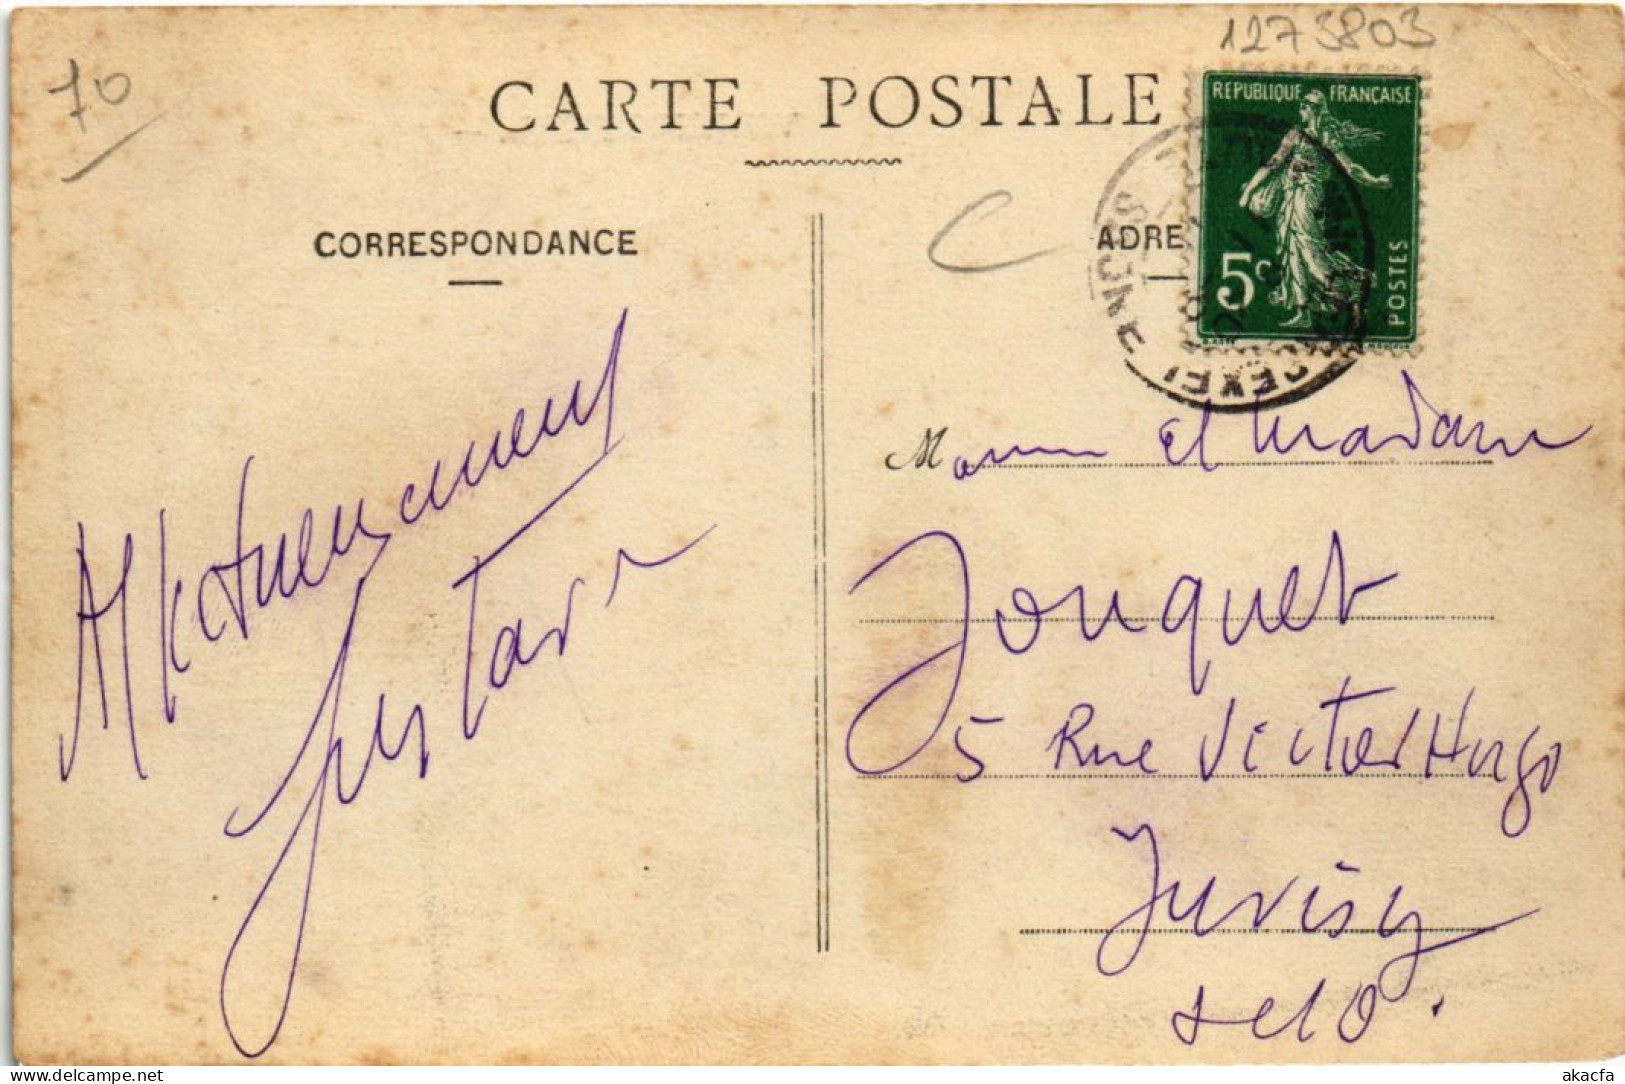 1273803
70
CARTE POSTALE
REPUBLIQUE FRANÇAISE
5c
POSTES
C
CORRESPONDANCE
ADRE
SEINE
M et Madame
Jouquet
5 Rue Victor Hugo
Juvisy
S et O.
Affectueusement
Gustave
delcampe.net
akacfa